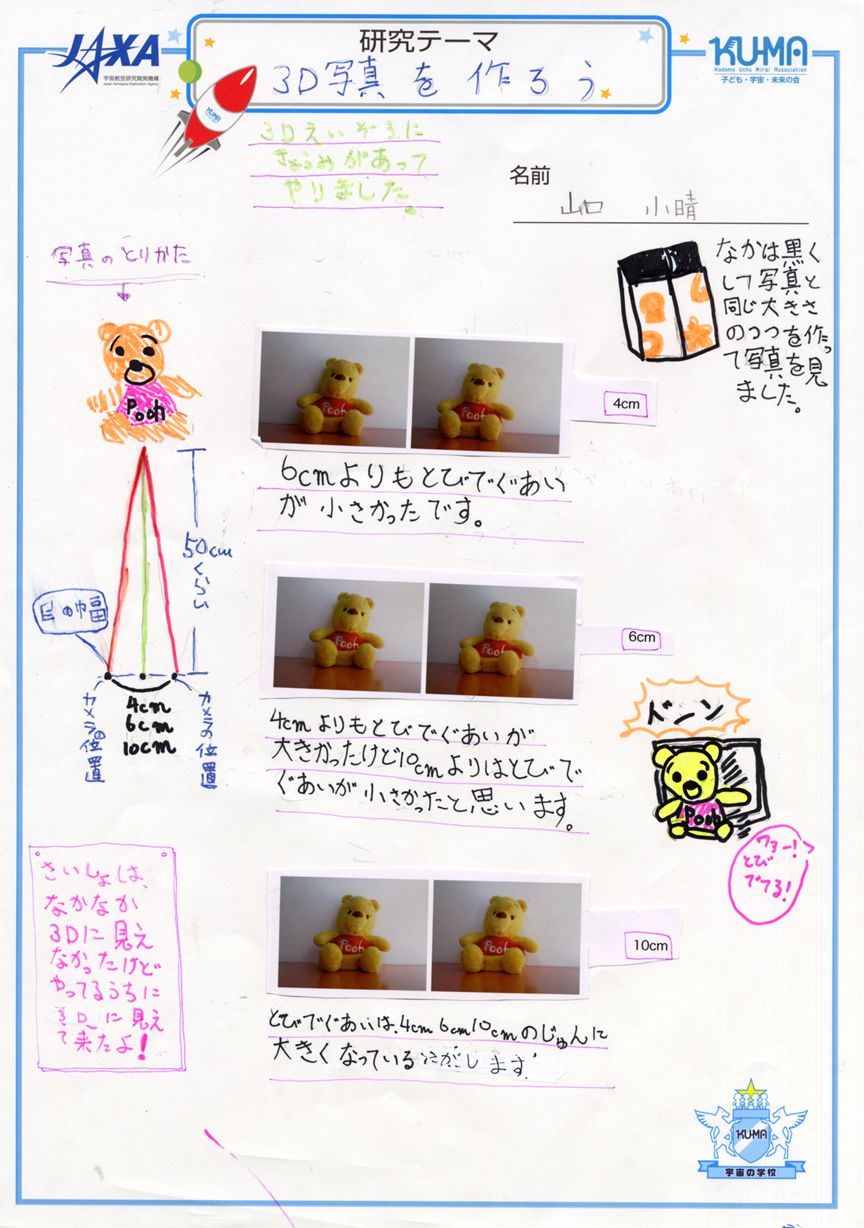 JAXA
宇宙航空研究開発機構
Japan Aerospace Exploration Agency
研究テーマ
3D写真を作ろう
KU-MA
Kodomo Uchu Mirai Association
子ども・宇宙・未来の会
KUMA
3Dえいぞうに
きょうみがあって
やりました。
名前
山口 小晴
写真のとりかた
Pooh
なかは黒く
して写真と
同じ大きさ
のつつを作っ
て写真を見
ました。
Pooh
Pooh
4cm
6cmよりもとびでぐあい
が小さかったです。
50cmくらい
目の幅
カメラの位置
4cm
6cm
10cm
カメラの位置
Pooh
Pooh
6cm
4cmよりもとびでぐあいが
大きかったけど10cmよりはとびで
ぐあいが小さかったと思います。
ドーン
Pooh
ワァー!
とび
でてる!
さいしょは、
なかなか
3Dに見え
なかったけど
やってるうちに
3Dに見え
て来たよ!
Pooh
Pooh
10cm
とびでぐあいは、4cm 6cm 10cmのじゅんに
大きくなっている気がします!
KU-MA
宇宙の学校